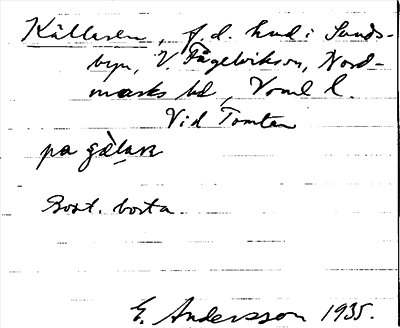 Källaren, f.d. hmd i Sunds-
byn, V. Fågelviks sn, Nord-
marks hd, Vrml l.
Vid Tomten
på gälan
Bost. borta.
E. Andersson 1935.